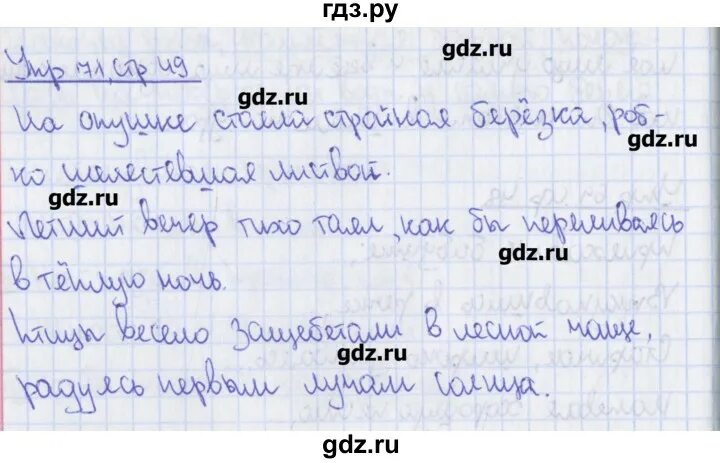 гдз.ру
gdz.ru
Упр 71, стр 49
gdz.ru
На опушке стояла стройная берёзка, роб-
gdz.ru
ко шелестевшая листвой.
gdz.ru
Летний вечер тихо таял, как бы переливаясь
gdz.ru
в тёплую ночь.
Птицы весело защебетали в лесной чаще,
gdz.ru
радуясь первым лучам солнца.
gdz.ru